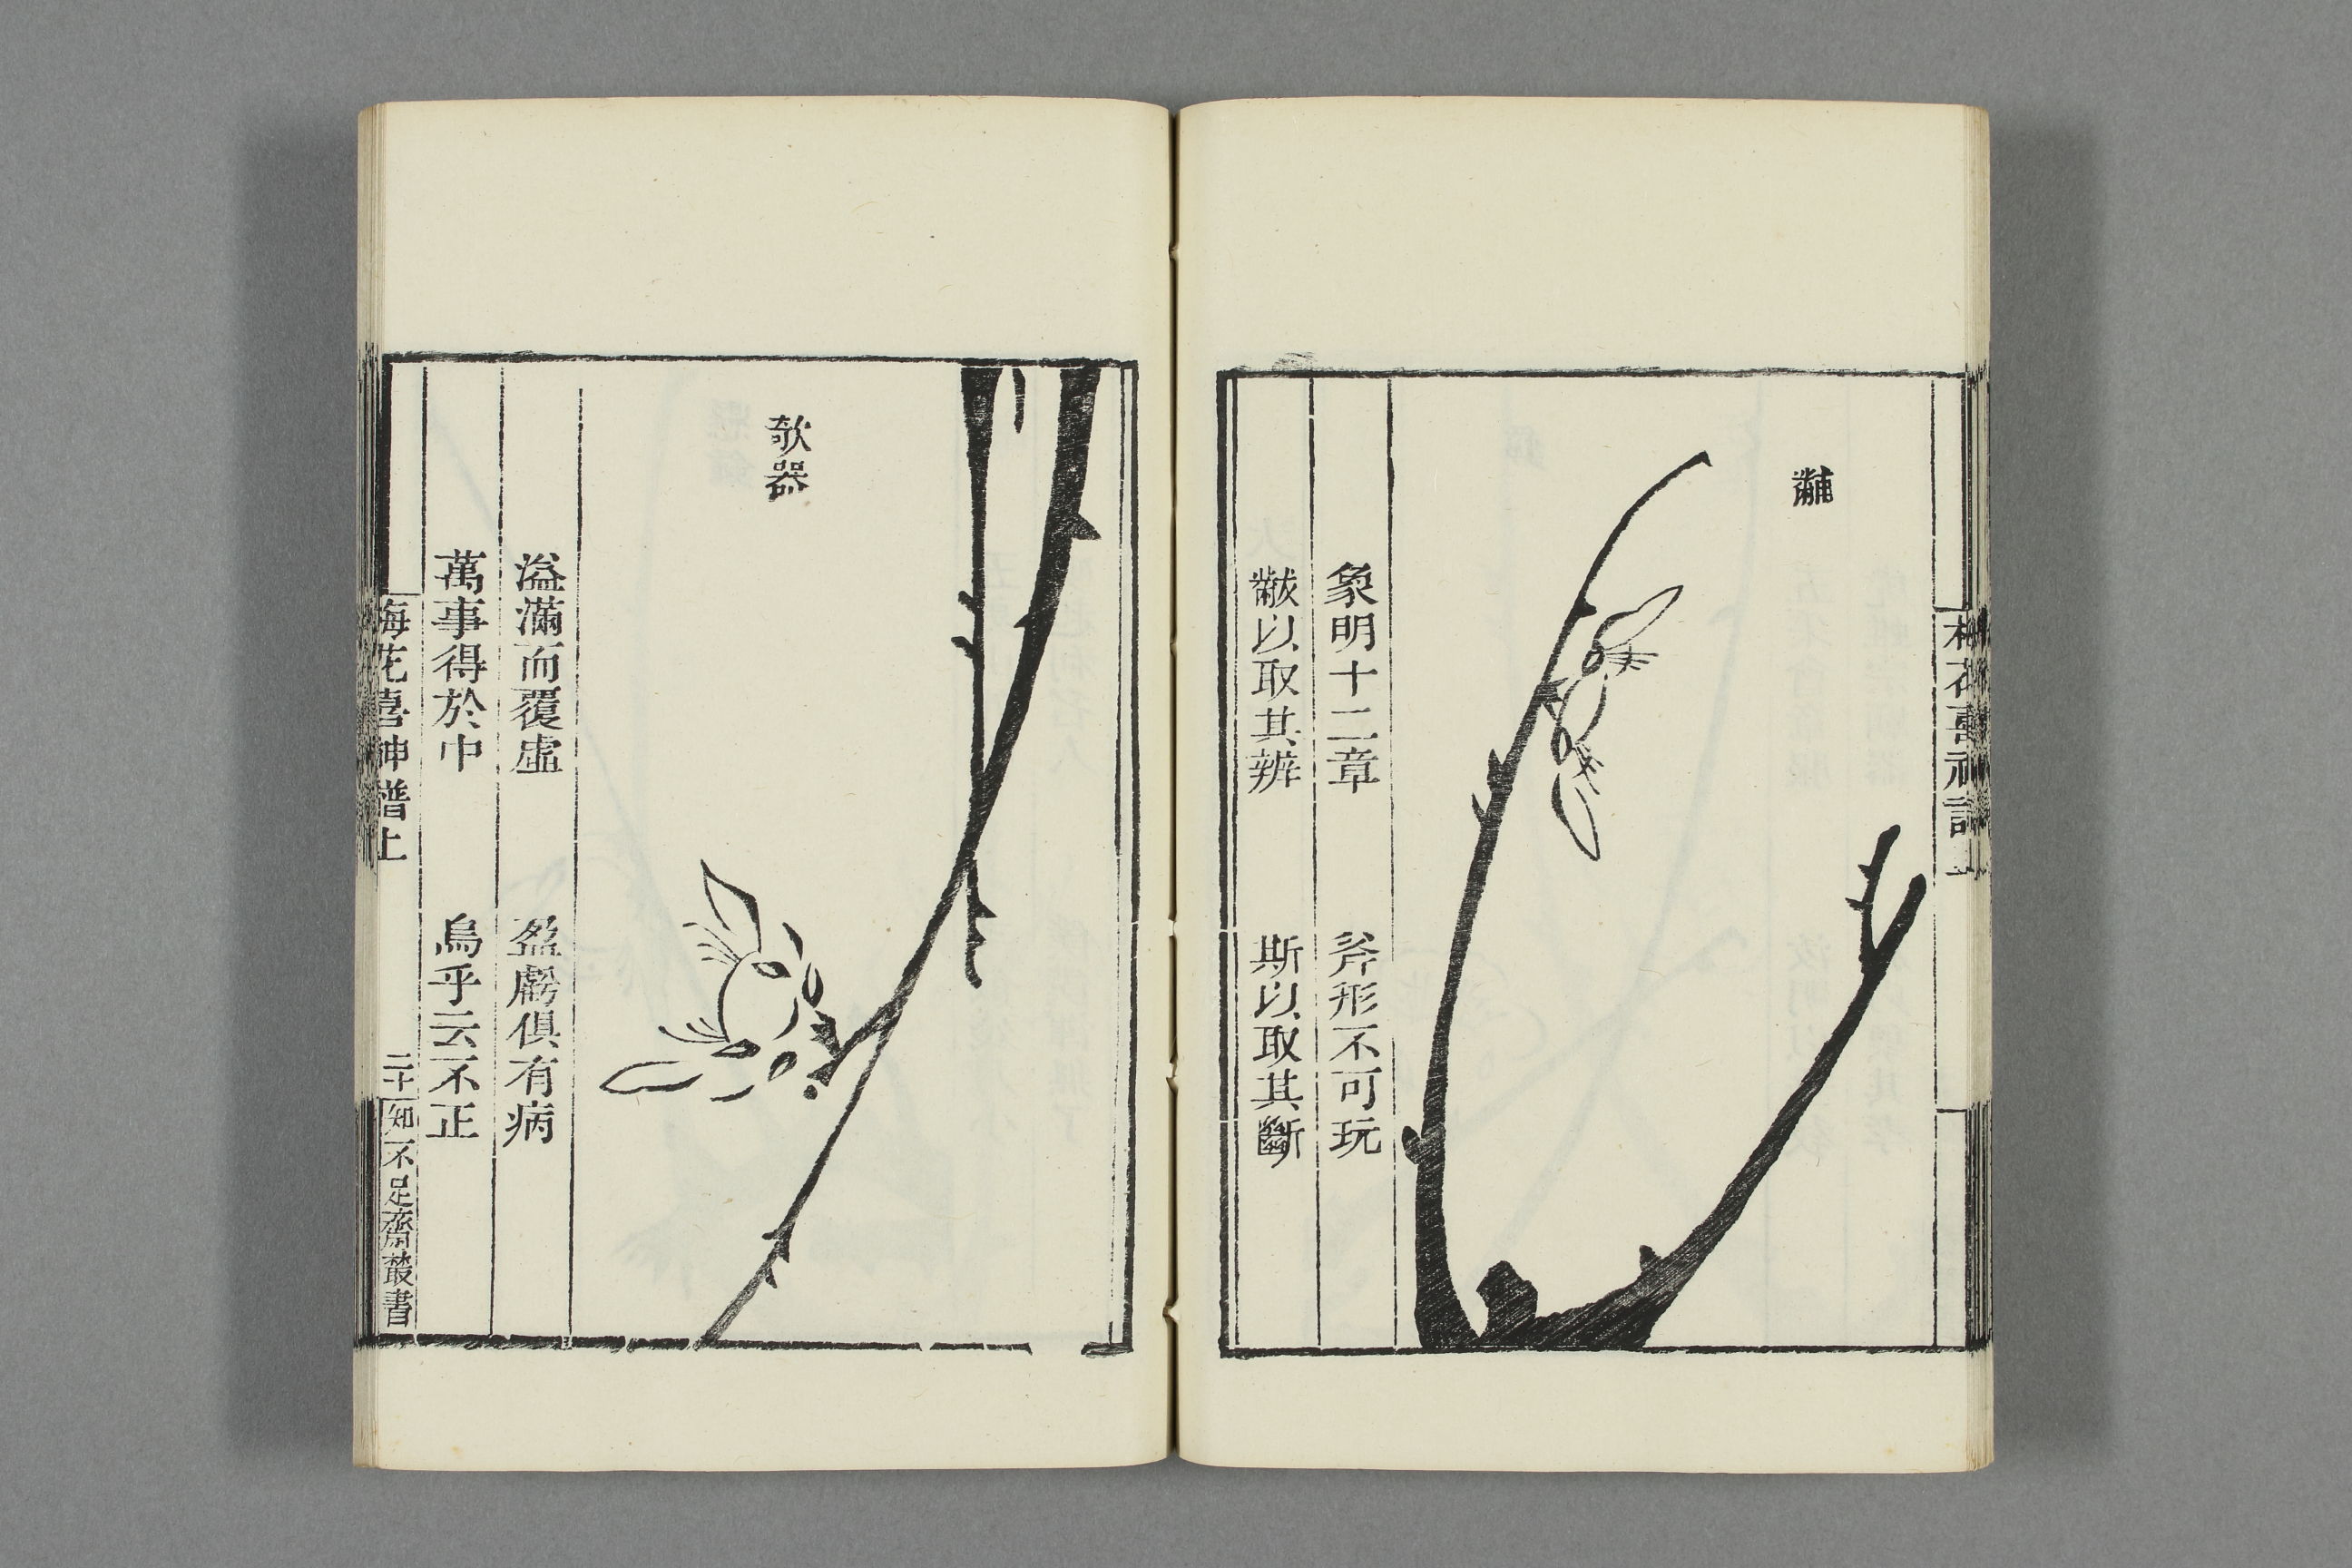 黼
象明十二章　斧形不可玩
黻以取其辨　斯以取其斷
梅花喜神譜上
欹器
溢滿而覆虛　盈虧俱有病
萬事得於中　烏乎云不正
梅花喜神譜上　二十　知不足齋叢書